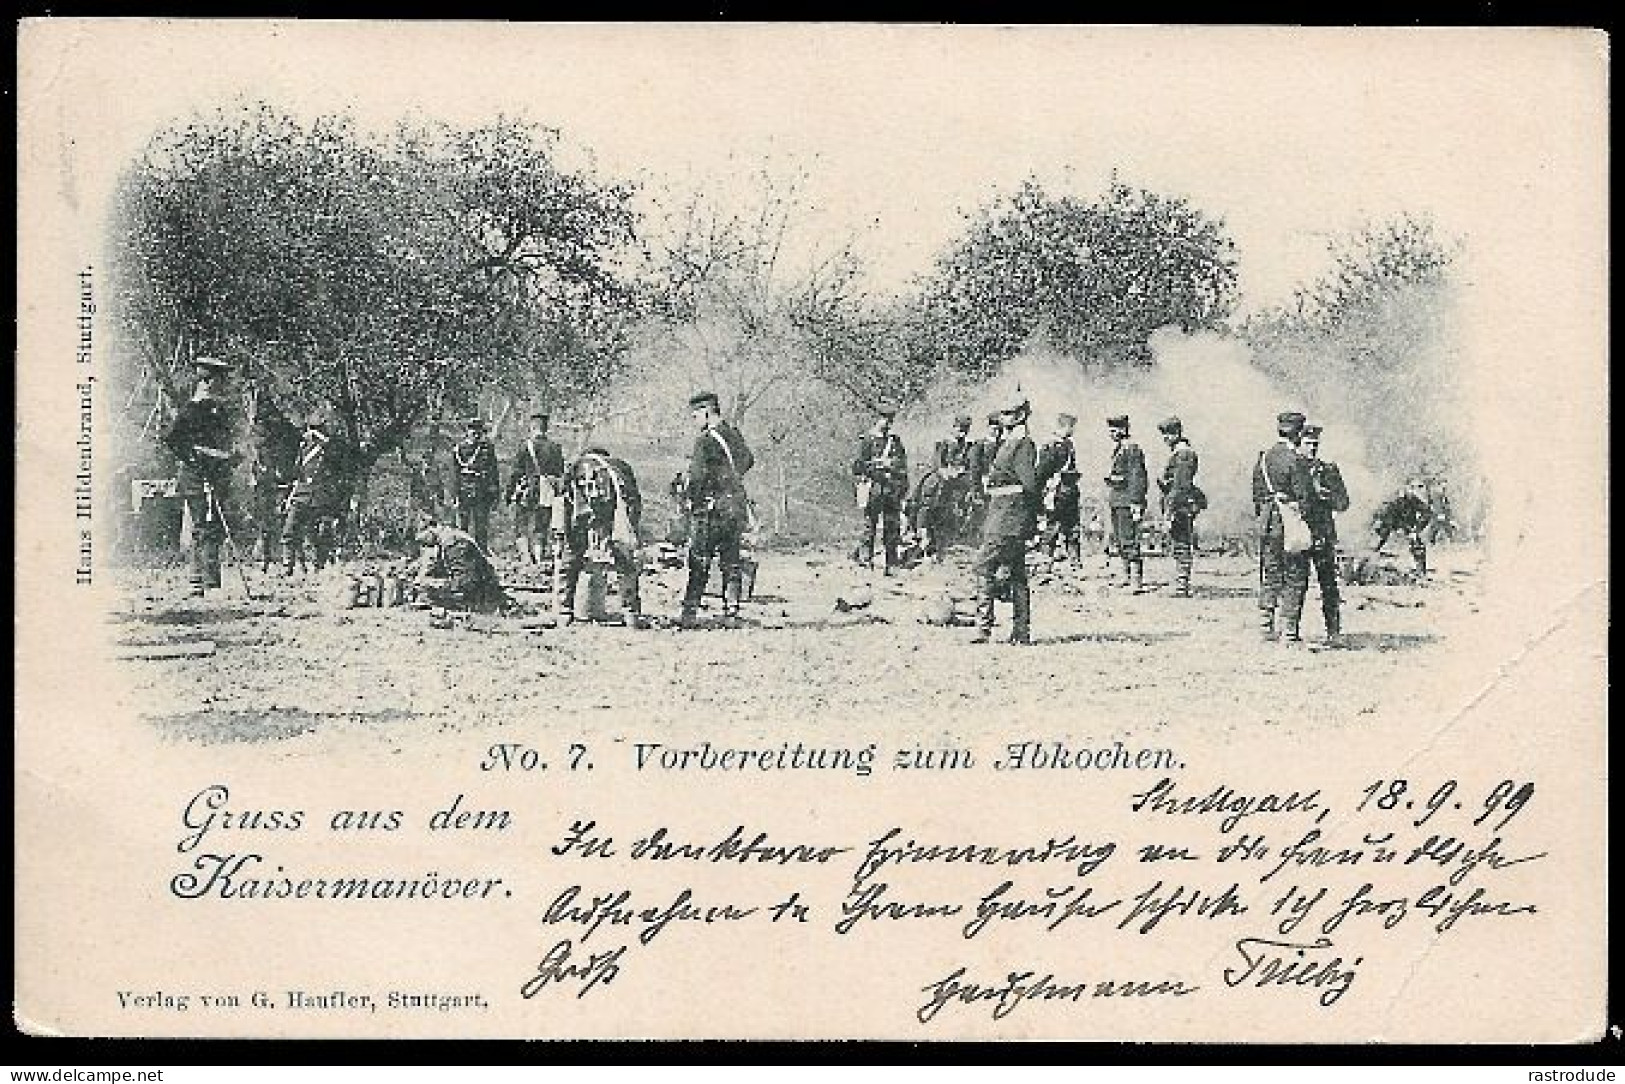 Hans Hildenbrand, Stuttgart.
No. 7. Vorbereitung zum Abkochen.
Gruss aus dem
Kaisermanöver.
Stuttgart, 18.9.99
In dankbarer Erinnerung an die freundliche
Aufnahme in Ihrem Hause schicke ich herzlichen
Gruß
Hauptmann
Verlag von G. Haufler, Stuttgart.
delcampe.net
rastrodude